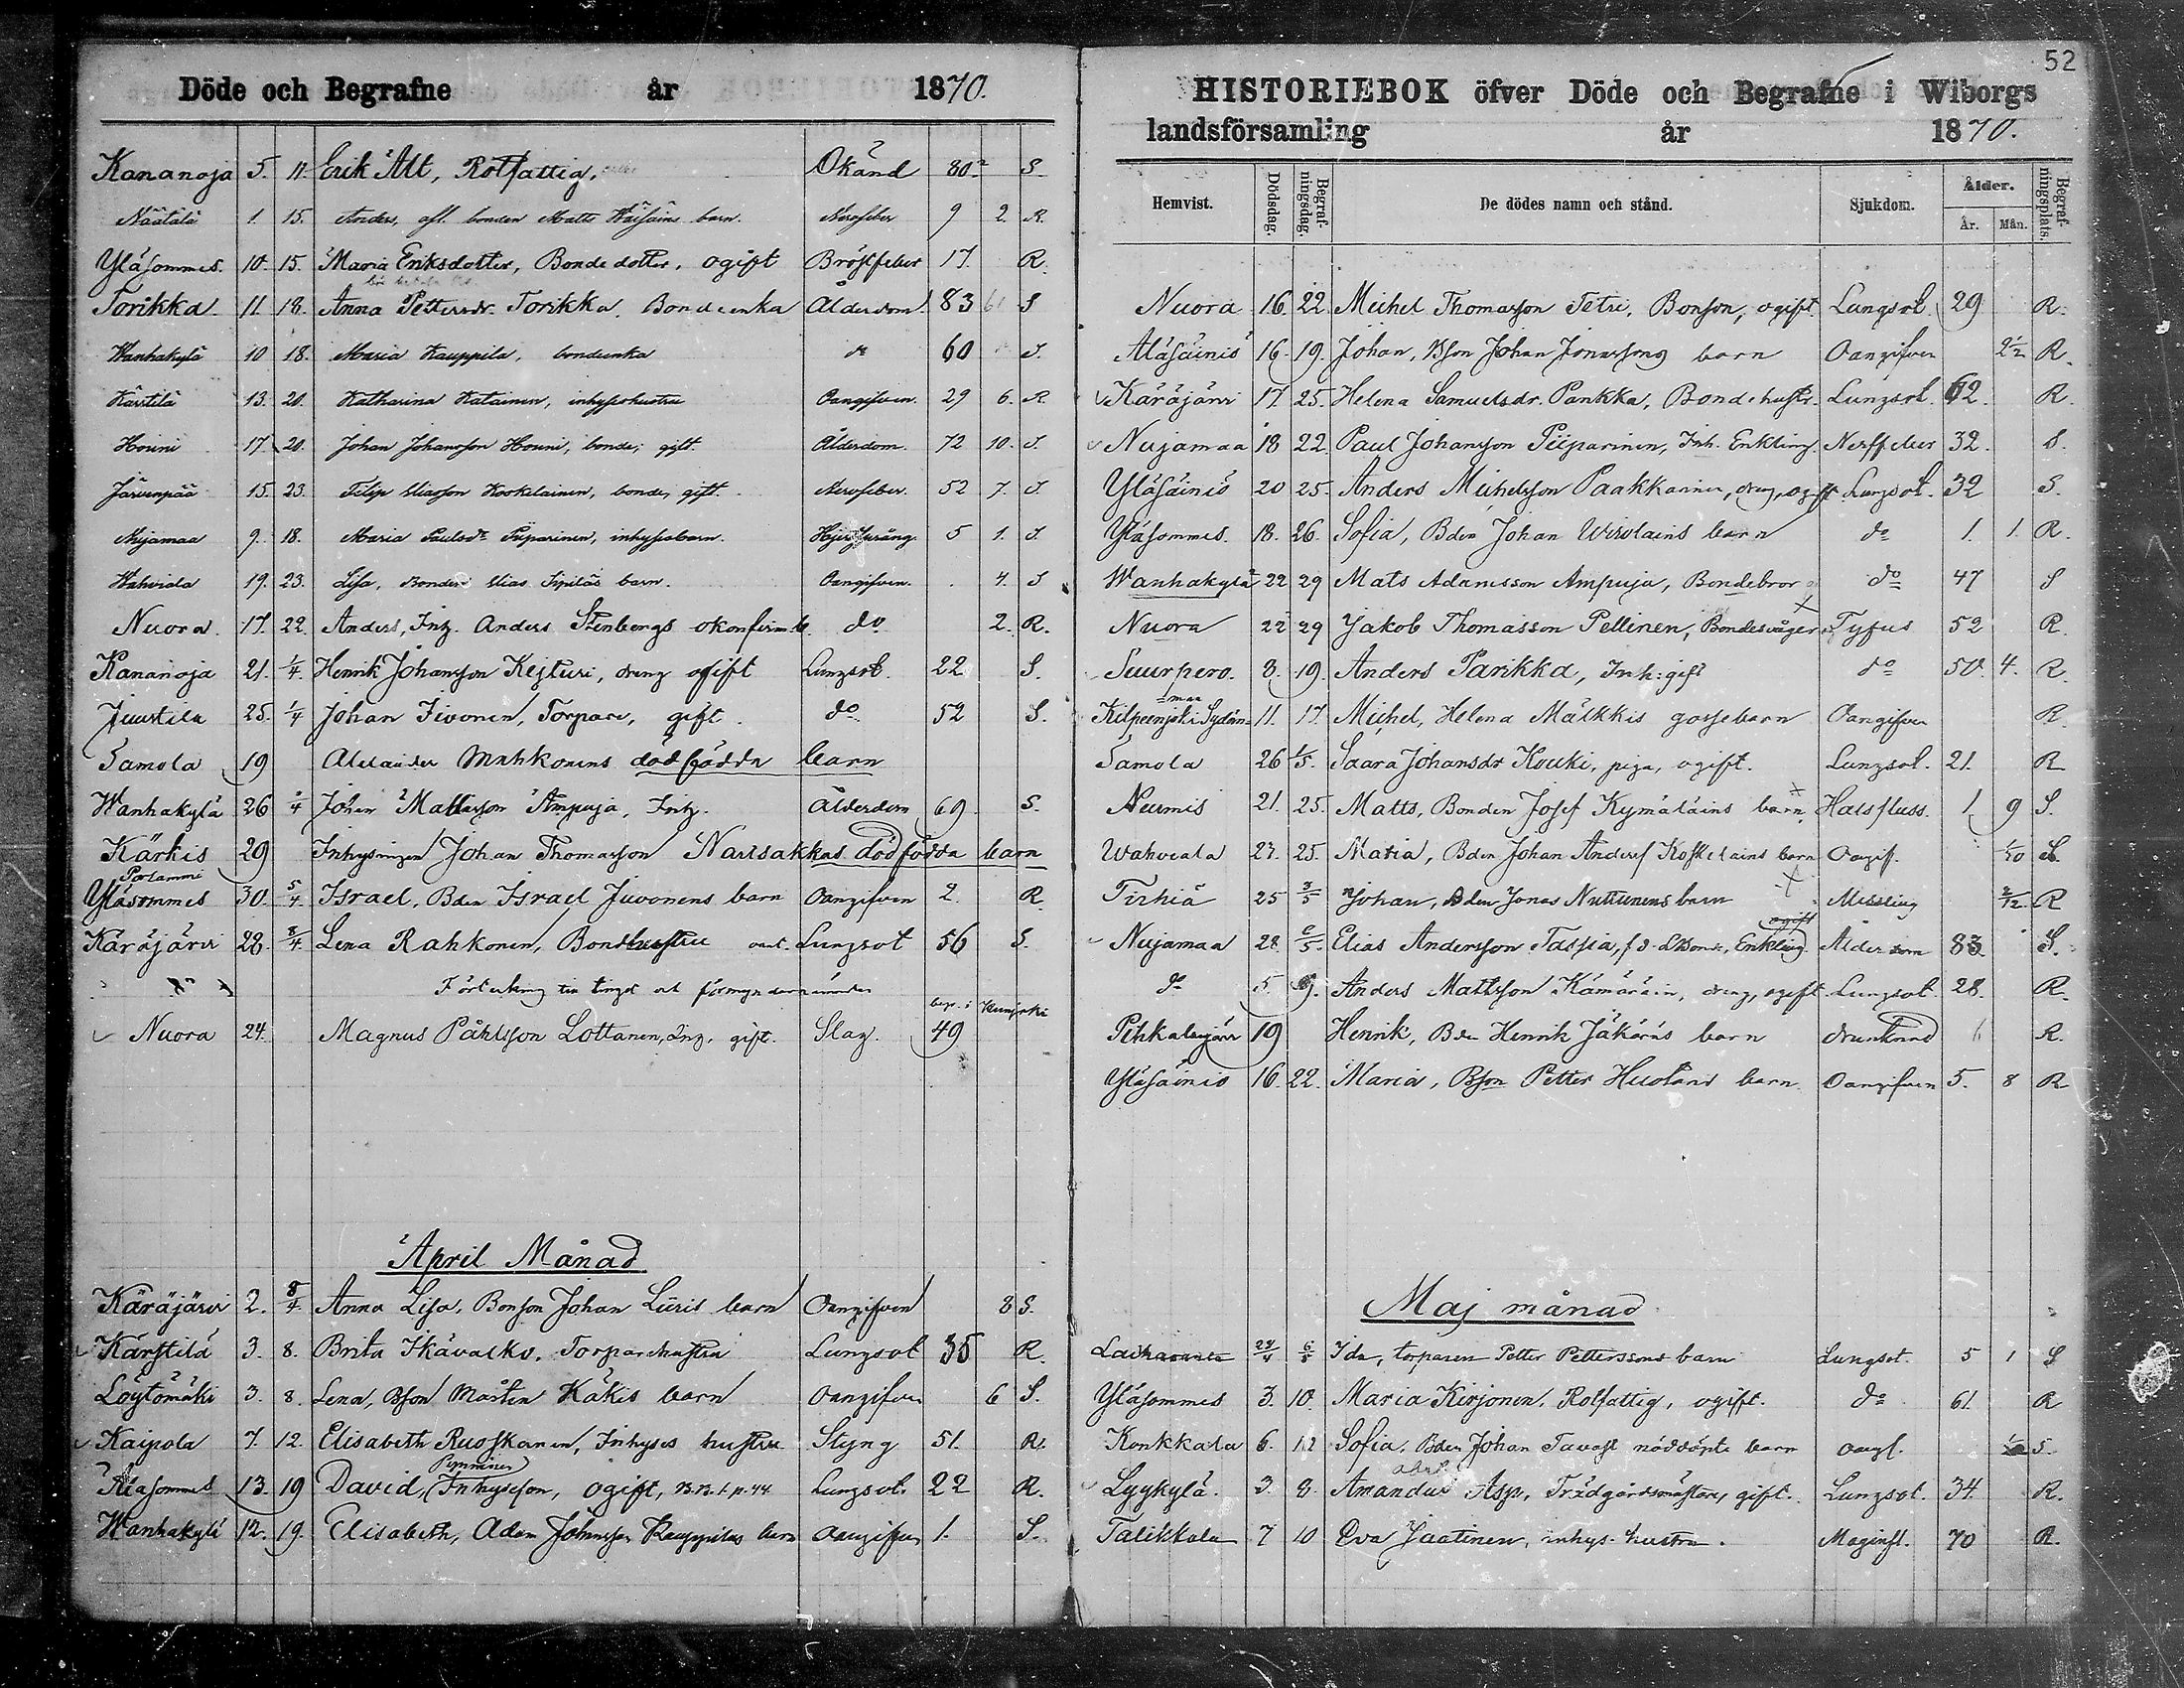 Döde och Begrafne år 1870.
Kananoja 5. 11. Erik Alt, Rotfattig. Okänd 80 S.
Näätälä 1. 15. Anders, afl. bonden Matts barn. Nervfeber 9 2. R.
Yläsommes. 10. 15. Maria Eriksdotter, Bondedotter, ogift Bröstfeber 17. R.
Torikka. 11. 18. Anna Pettersdr. Torikka. Bondeenka Ålderdom. 83 S
Wanhakylä 10 18. Maria Kauppila, bondeenka do 60 S.
Kärstilä 13. 20. Katharina Katainen, inhyseshustru Oangifven. 29 6. R.
Houni 17. 20. Johan Johansson Houni, bonde, gift. Ålderdom. 72 10. S.
Järvenpää 15. 23. Filip Eliasson Kookalainen, bonde, gift. Nervfeber. 52 7. S.
Nujamaa 9. 18. Maria Paulsdr Piiparinen, inhysesbarn. 5 1. S.
Wahviala 19. 23. Lisa, Bonden Elias Sipiläs barn. Oangifven. 4. S
Nuora. 17. 22. Anders, Inh. Anders Stenbergs okonfirm. b. do 2. R.
Kananoja 21. 1/4. Henrik Johansson Kejturi, dreng ogift Lungsot. 22 S.
Juustila 25. 1/4 Johan Sivonen, Torpare, gift. do 52 S.
Samola 19 Alexander Mahkonens dödfödda barn
Wanhakylä 26 /4 Johan Mattsson Ampuja, Inh. Ålderdom 69. S.
Kärkis 29 Inhysingen Johan Thomasson Narisakkas dödfödda barn
Portammi
Yläsommes 30. 5/4. Israel, Bden Israel Juvonens barn Oangifven 2. R.
Käräjärvi 22. 8/4. Lena Rahkonen, Bondhustru Lungsot 56 S.
Förteckning till tinget och förmyndarenämnden
Nuora 24. Magnus Påhlsson Lottanen, Inh. gift. Slag. 49
April Månad
Käräjärvi 2. 8/4 Anna Lisa, Bonson Johan Liiris barn Oangifven 8 S.
Kärstilä 3. 8. Brita Ikävalko. Torparehustru Lungsot 35 R.
Löytömäki 3. 8. Lena, Bson Mårten Käkis barn Oangifven 6 S.
Kaipola 7. 12. Elisabeth Ruoskanen, Inhyses hustru Styng 51. R.
Alasommes 13. 19 David, Inhysesson, ogift, B.B. 1. p. 44 Lungsot. 22 R.
Wanhakylä 12. 19. Elisabeth, Adam Johansson Kauppilas barn Oangifven 1. S.
52
HISTORIEBOK öfver Döde och Begrafne i Wiborgs
landsförsamling år 1870.
Hemvist. Dödsdag. Begrafningsdag. De dödes namn och stånd. Sjukdom. Ålder. År. Mån. Begrafningsplats.
Nuora 16. 22. Michel Thomasson Tetri, Bonson, ogift. Lungsot 29 R.
Alasäiniö 16. 19. Johan, Bson Johan Jonassons barn Oangifven 2 1/2 R.
Käräjärvi 17. 25. Helena Samuelsdr. Pankka, Bondehustr. Lungsot. 62. R.
Nujamaa 18 22. Paul Johansson Piiparinen, Inh. Enkling. Nervfeber 32. S.
Yläsäiniö 20 25. Anders Michelsson Paakkarinen, dreng, ogift Lungsot. 32 S.
Yläsommes. 18. 26. Sofia, Bden Johan Wirolains barn do 1. 1. R.
Wanhakylä 22 29 Mats Adamsson Ampuja, Bondebror do 47 S
Nuora 22 29 Jakob Thomasson Pellinen, Bondesvåger Tyfus 52 R.
Suurpero. 8. 19. Anders Parikka, Inh: gift do 50. 4. R.
Kilpeenjoki Sydän=
=maa
11. 17. Michel, Helena Mälkkis gossebarn Oangifven R.
Samola 26 1/5. Saara Johansdr Kouki, piga, ogift. Lungsot. 21. R
Nurmis 21. 25. Matts, Bonden Josef Kymäläins barn. Halsfluss. 1. 9 S.
Wahviala 23. 25. Maria, Bden Johan Anders Koskelains barn Oangif. 1/10 S.
Tirhiä 25 3/5 Johan, Bden Jonas Nuttunens barn Messling 2/12. R
Nujamaa 28. /5. Elias Andersson Tassia, f.d. Bonde, Enkling. Ålderdom 83. S.
ogift
do 5. 9. Anders Mattsson Kämäräin, dreng, ogift Lungsot. 28. R.
Pihkalanjärvi 19 Henrik, Bden Henrik Jäkäräs barn drunknad R.
Yläsäiniö 16. 22. Maria, Bson Petter Huolans barn. Oangifven 5. 8 R
Maj månad
24/4 6/5 Ida, torparen Petter Petterssons barn Lungsot. 5 1 S
Yläsommes 3. 10. Maria Kirjonen. Rotfattig, ogift. do 61. R
Konkkala 6. 12 Sofia. Bden Johan Tavast nöddöpte barn oangf. S.
Lyykylä. 3. 8. Amandus Asp, Trädgårdsmästare, gift. Lungsot. 34. R.
Talikkala 7 10 Eva Jaatinen, inhys. hustru. Maginfl. 70 R.